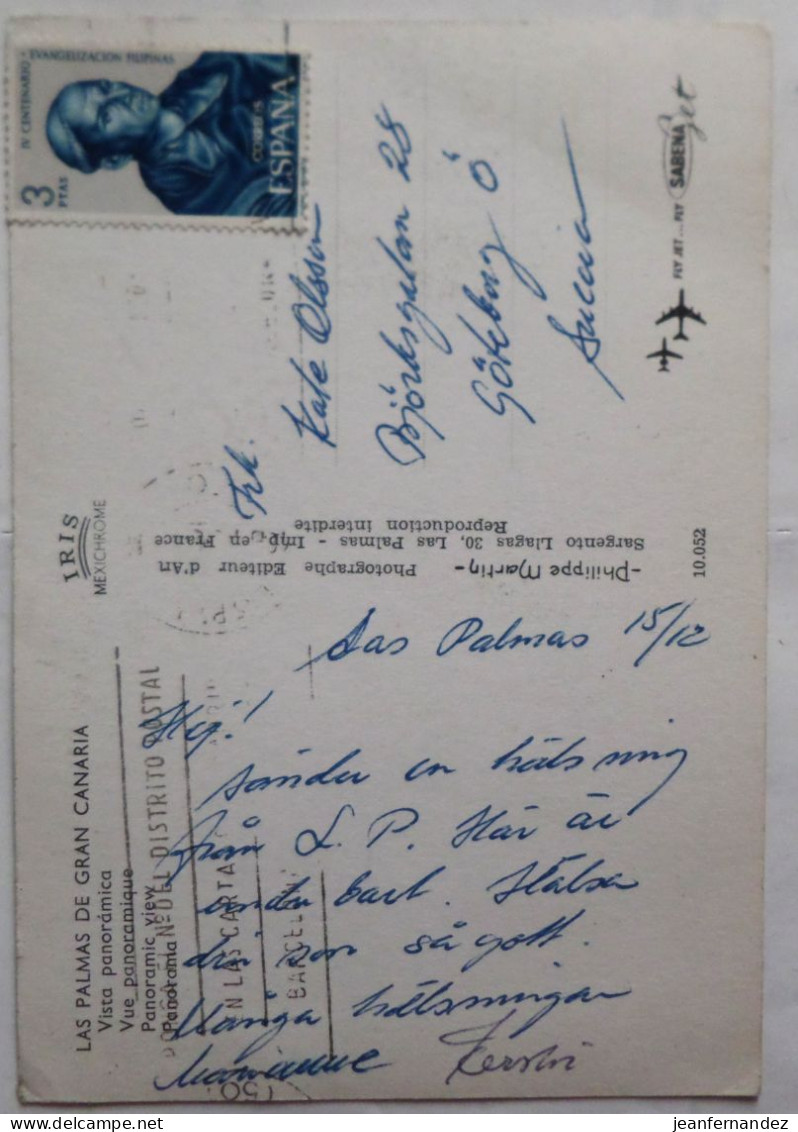 LAS PALMAS DE GRAN CANARIA
Vista panorámica
Vue panoramique
Panoramic view
Panorama
IRIS
MEXICHROME
IV CENTENARIO EVANGELIZACION FILIPINAS
3
PTAS
CORREOS
ESPAÑA
PONGA EL Nº DEL DISTRITO POSTAL
EN LAS CARTAS
BARCELONA
Las Palmas 15/12
Hej!
Sänder en hälsning
från L. P. Här är
underbart. Hälsa
din son så gott.
Många hälsningar
Marianne Kerstin
-Philippe Martin- Photographe Editeur d'Art
Sargento Llagas 30, Las Palmas - Imp. en France
Reproduction interdite
10.052
Frk.
Kate Olsson
Björksgatan 28
Göteborg Ö
Suecia
FLY JET... FLY SABENA jet
jeanfernandez